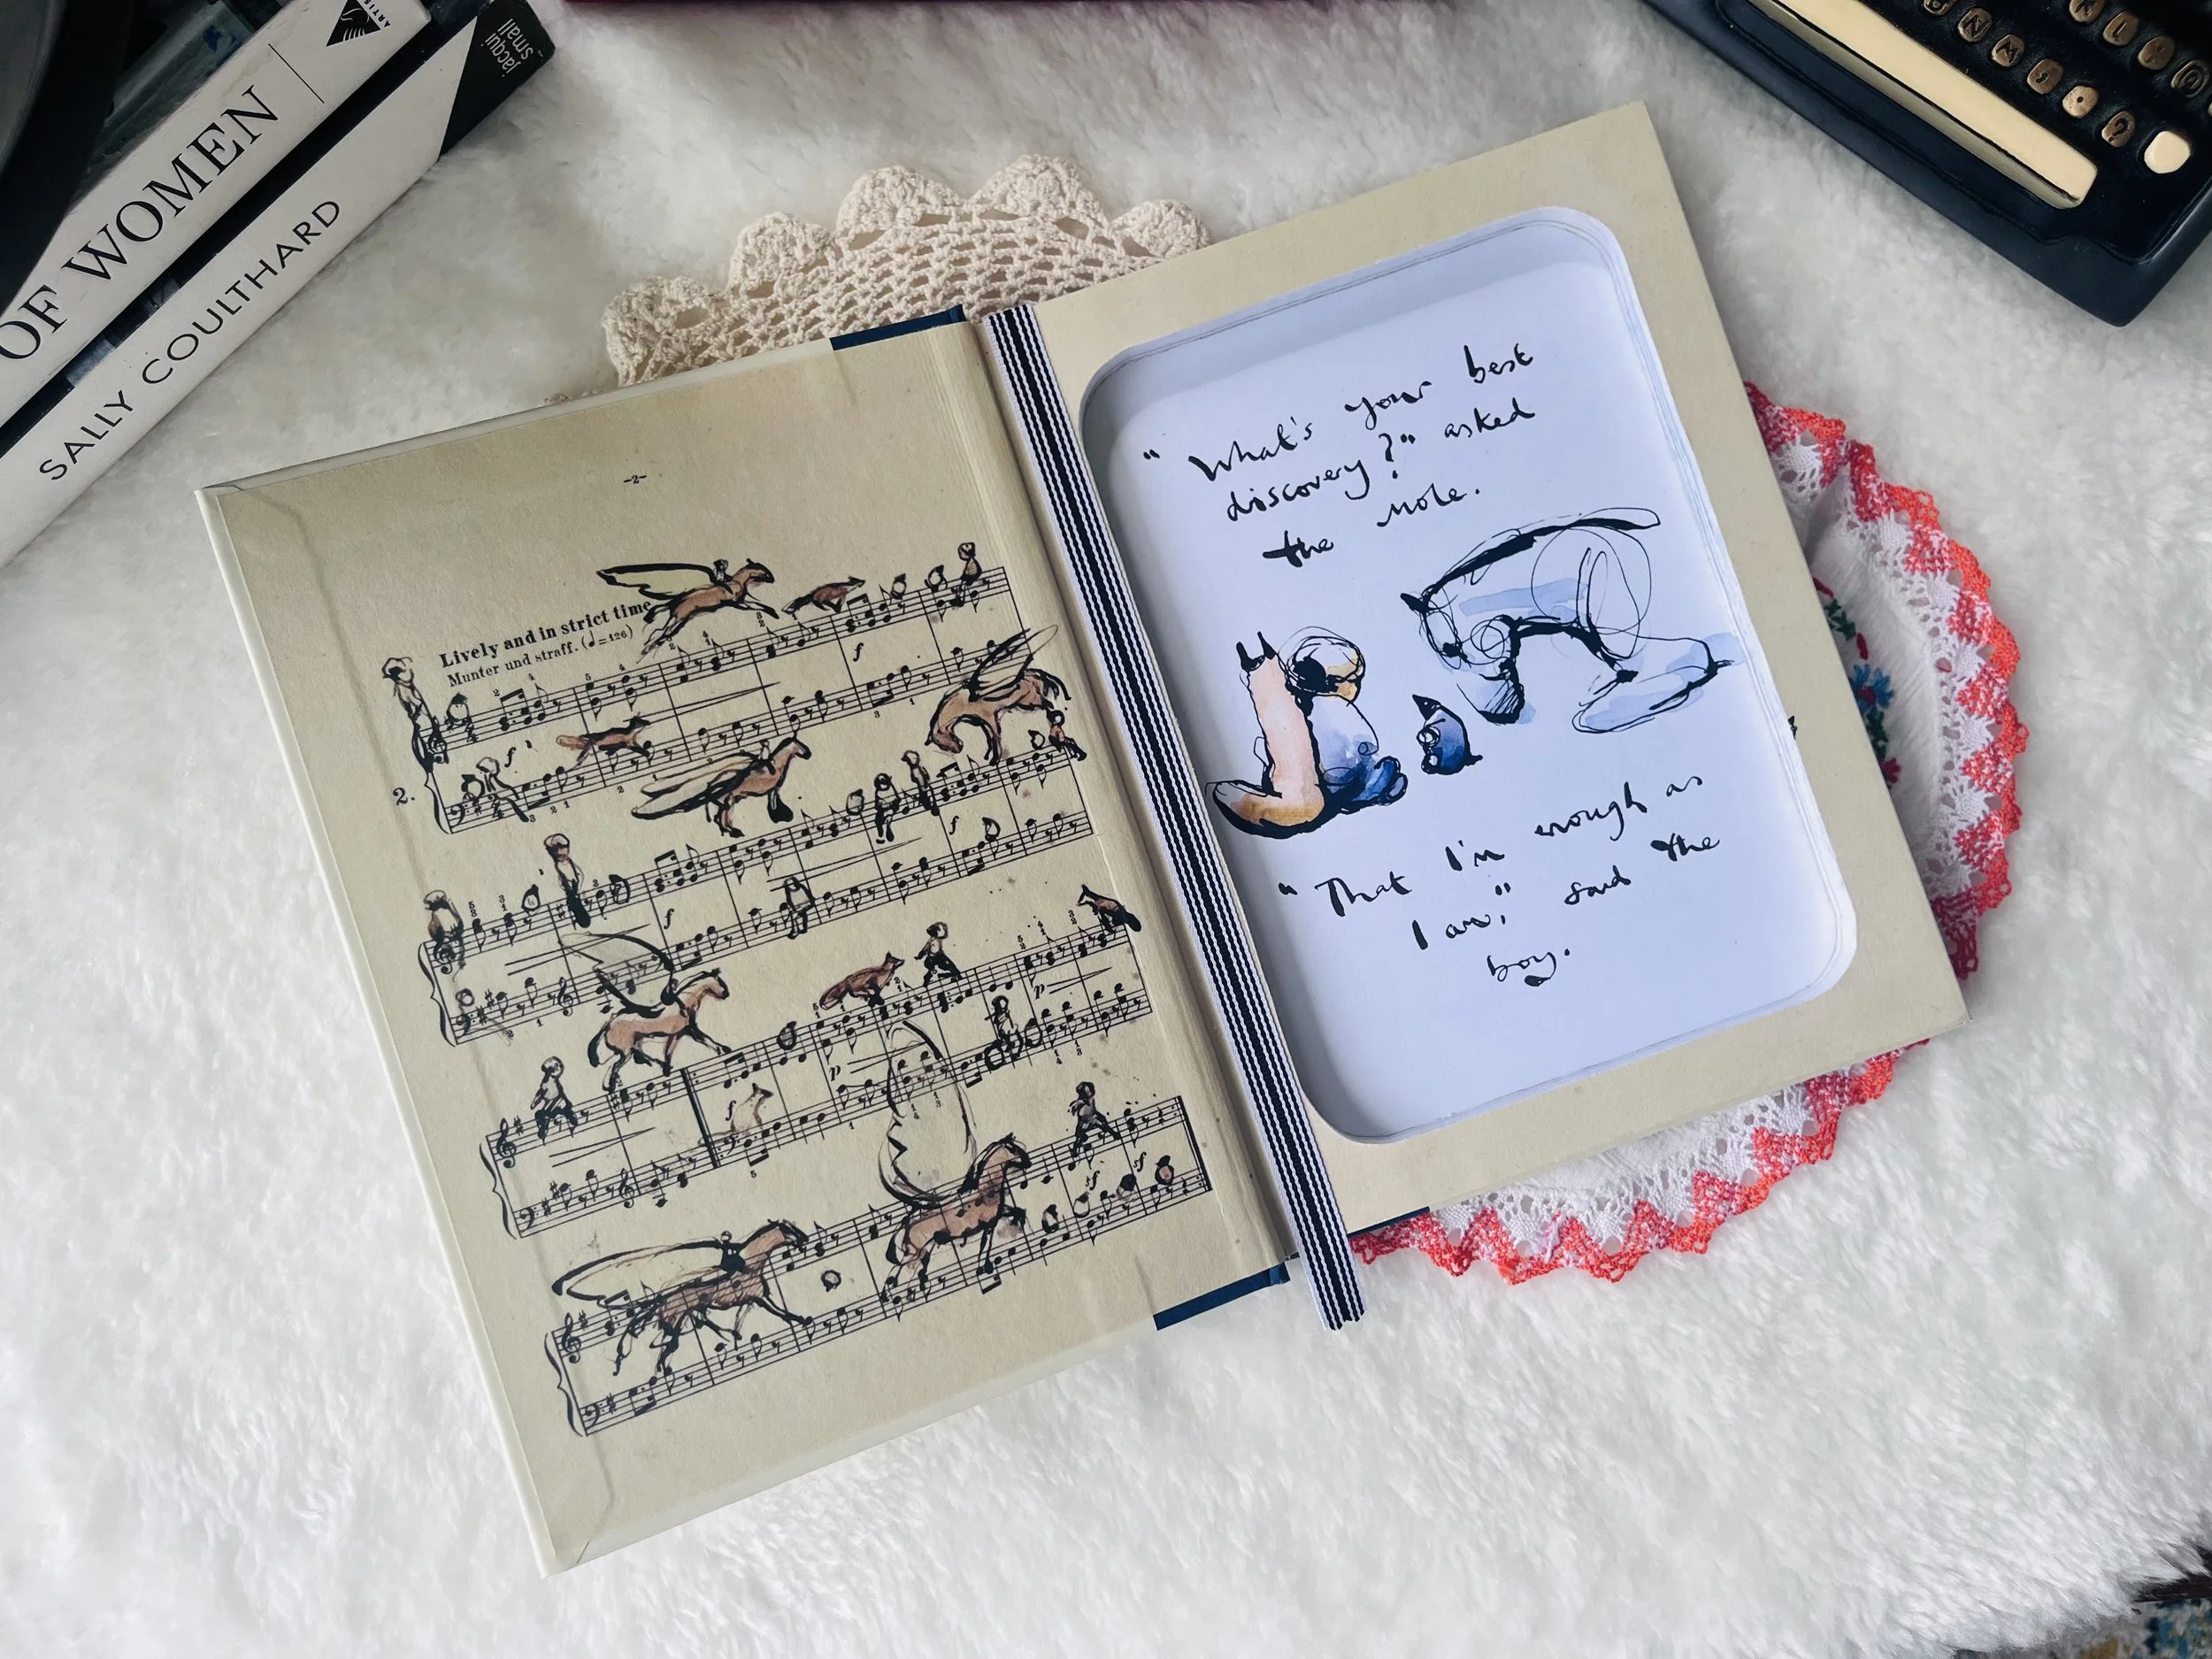 OF WOMEN
ARTIS
jacqui
small
SALLY COULTHARD
-2-
Lively and in strict time
Munter und straff. (♩=126)
2.
"What's your best
discovery?" asked
the mole.
"That I'm enough as
I am," said the
boy.